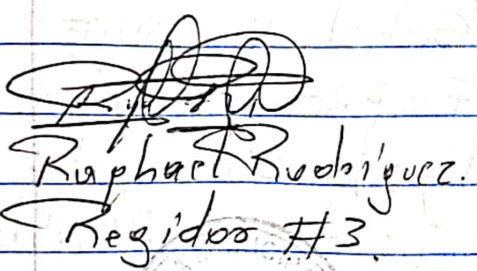 Raphael Rodriguez.
Regidor #3.